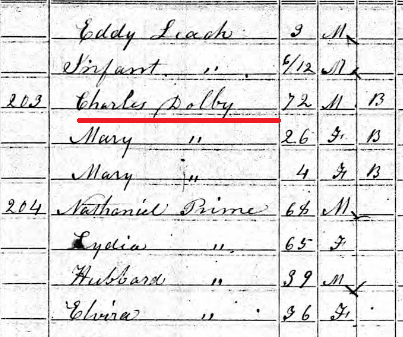 Eddy Leach 3 M
Infant " 6/12 M
203 Charles Dolby 72 M B
Mary " 26 F B
Mary " 4 F B
204 Nathaniel Prime 68 M
Lydia " 65 F
Hubbard " 39 M
Elvira " 36 F